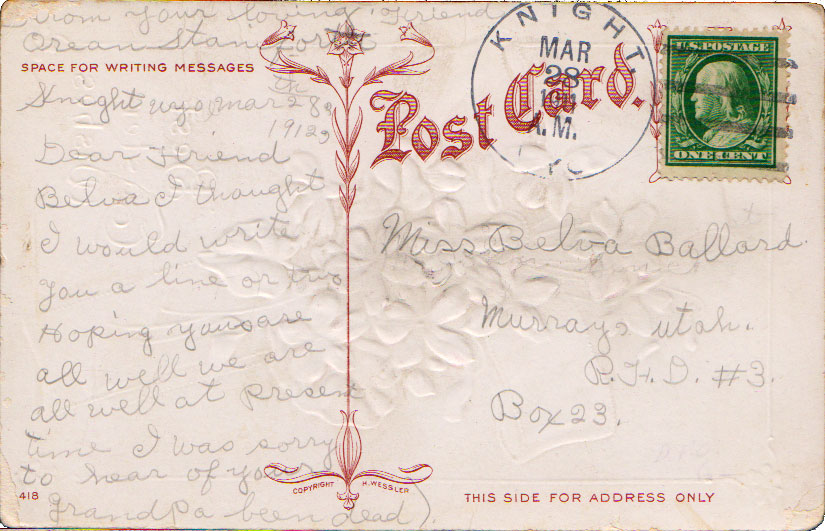 from your loving friend
Orean Staniforth
SPACE FOR WRITING MESSAGES
Knight wyo, mar 28th
1912,
Dear Friend
Belva I thought
I would write
you a line or two
Hoping you are
all well we are
all well at present
time I was sorry
to hear of your
Grandpa been dead).
418
COPYRIGHT H. WESSLER
Post Card.
KNIGHT,
MAR
28
A.M.
WYO
U.S. POSTAGE
ONE CENT
Miss Belva Ballard.
Murray, utah.
R.F.D. #3.
Box 23.
THIS SIDE FOR ADDRESS ONLY